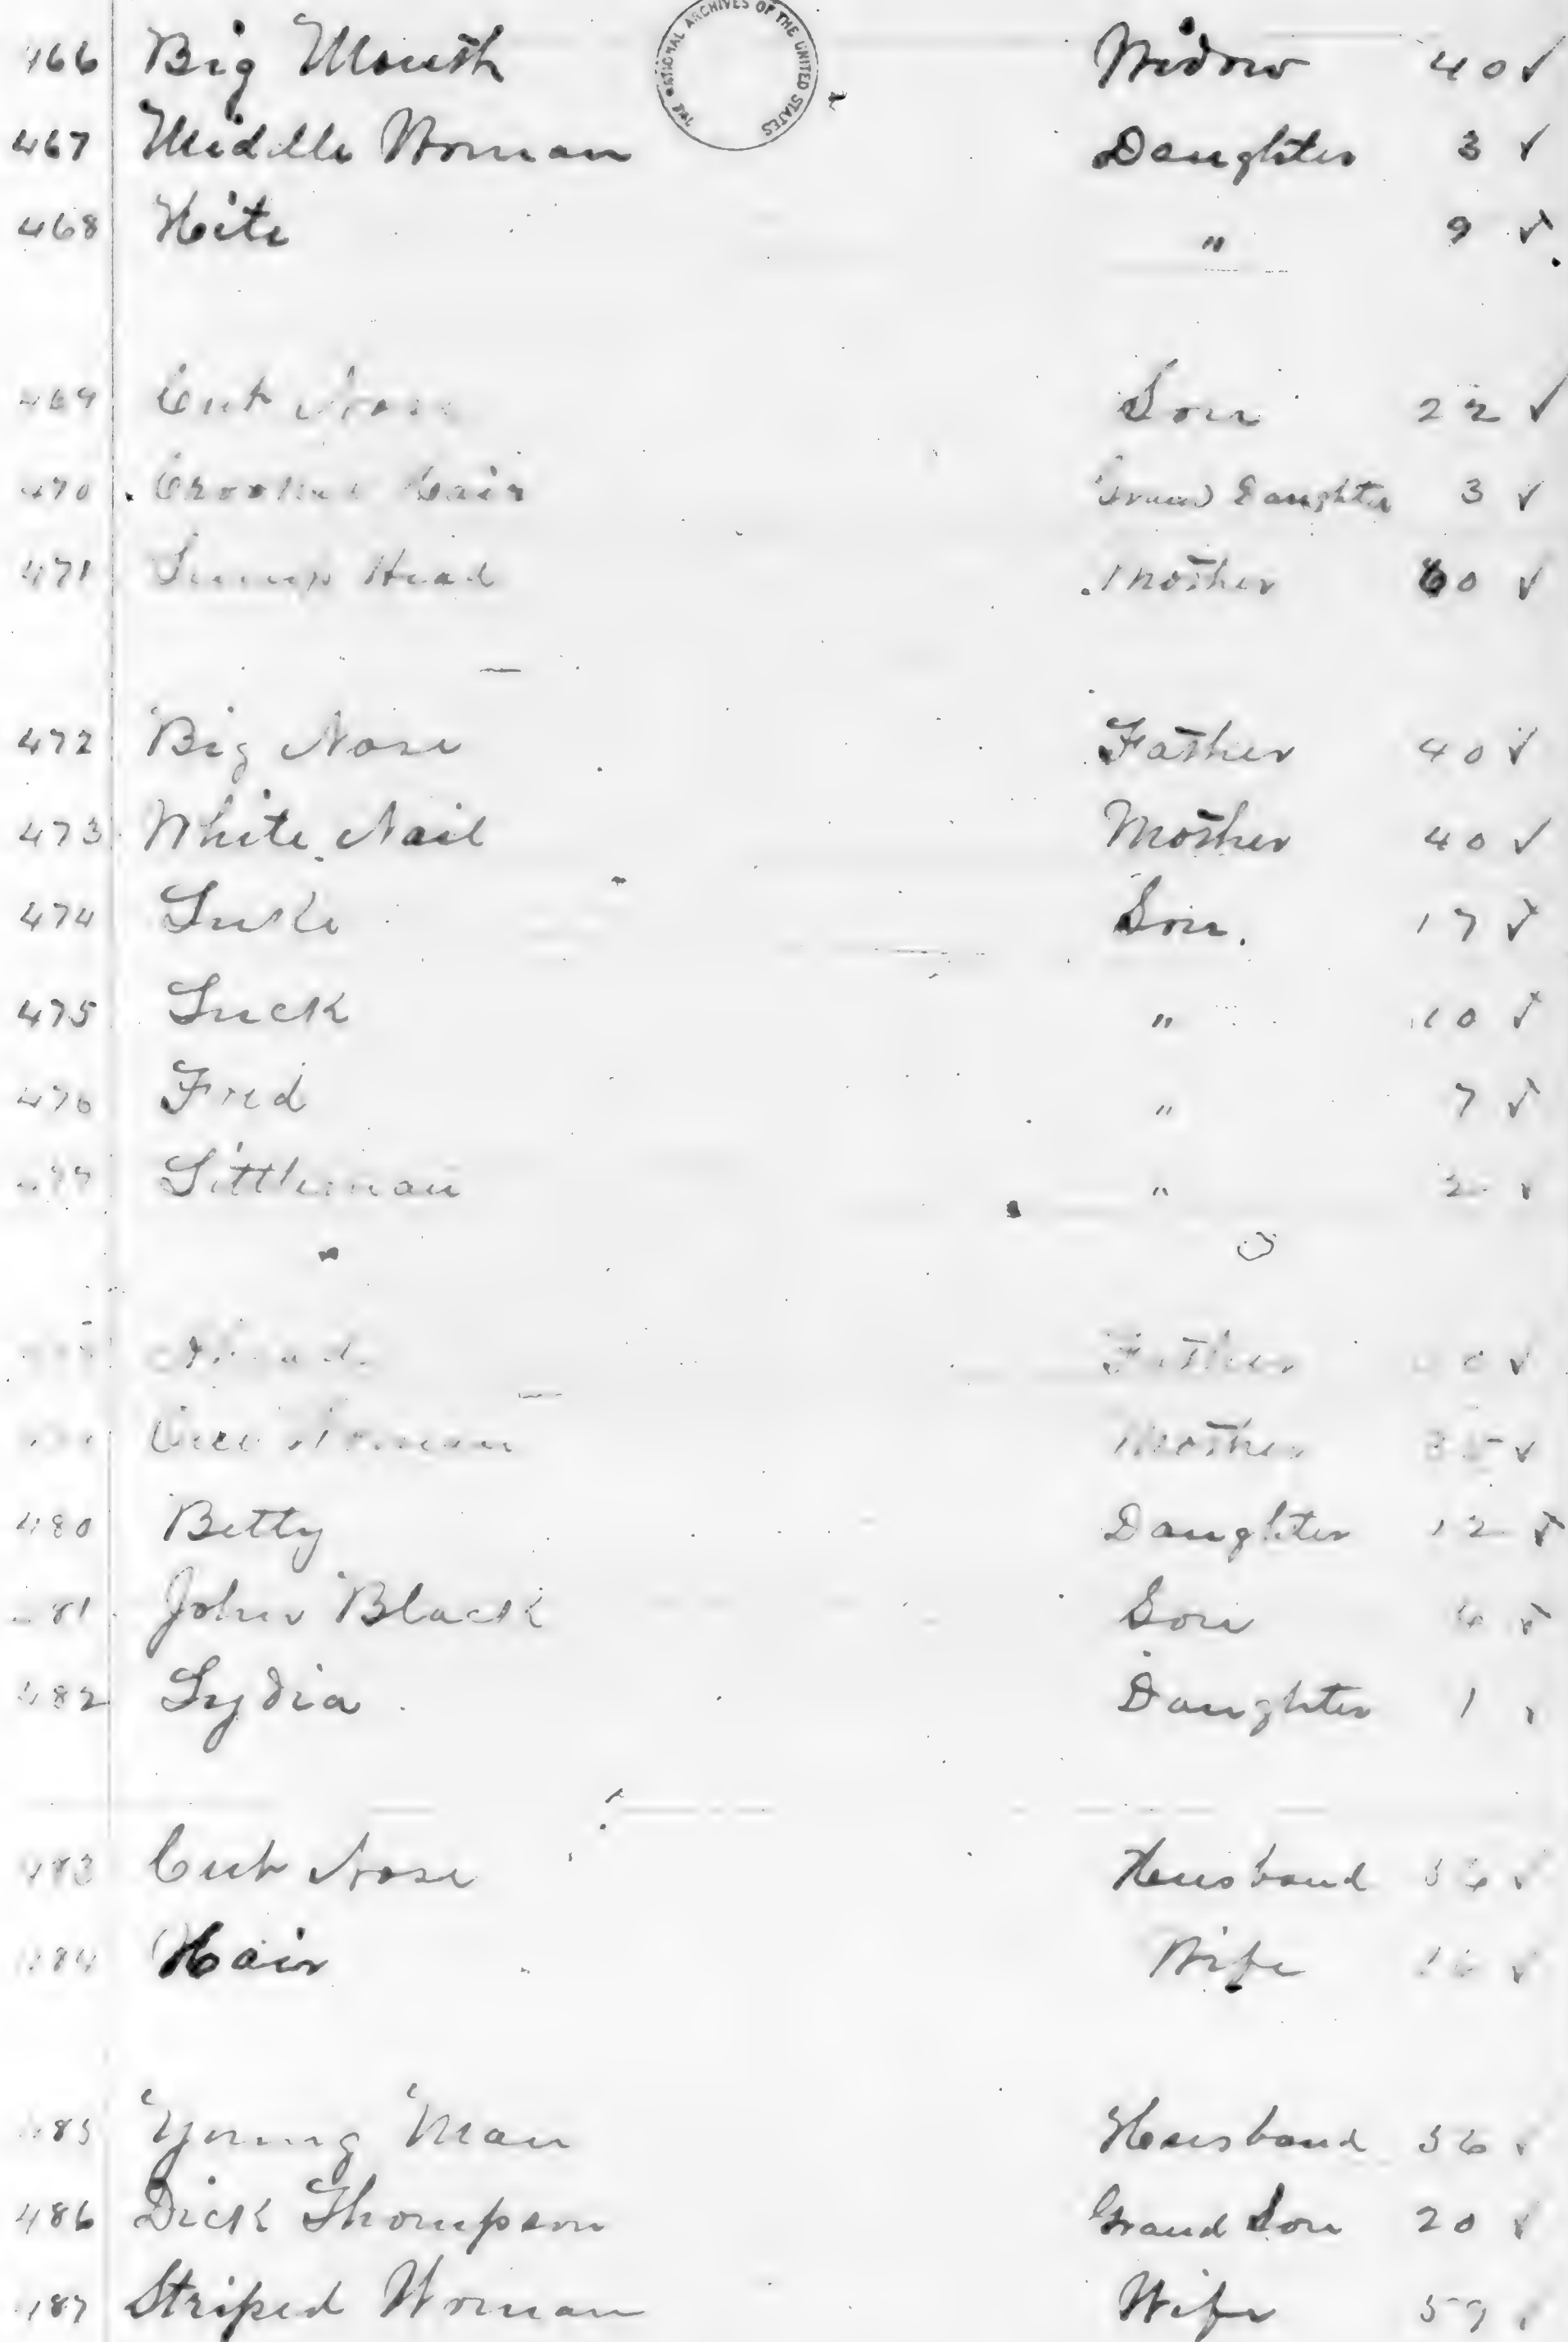 THE NATIONAL ARCHIVES OF THE UNITED STATES
466 Big Mouth Widow 40 ✓
467 Middle Woman Daughter 3 ✓
468 Kite " 9 ✓
469 Cut Nose Son 22 ✓
470 Hair Grand Daughter 3 ✓
471 Head Mother 60 ✓
472 Big Nose Father 40 ✓
473 White Nail Mother 40 ✓
474 Luke Son. 17 ✓
475 Luck " 10 ✓
476 Fred " 7 ✓
477 Littleman " 2 ✓
Father ✓
Woman Mother 35 ✓
480 Betty Daughter 12 ✓
481 John Black Son 4 ✓
482 Lydia Daughter 1
483 Cut Nose Husband ✓
484 Hair Wife ✓
485 Young Man Husband 56
486 Dick Thompson Grand Son 20 ✓
487 Striped Woman Wife 57